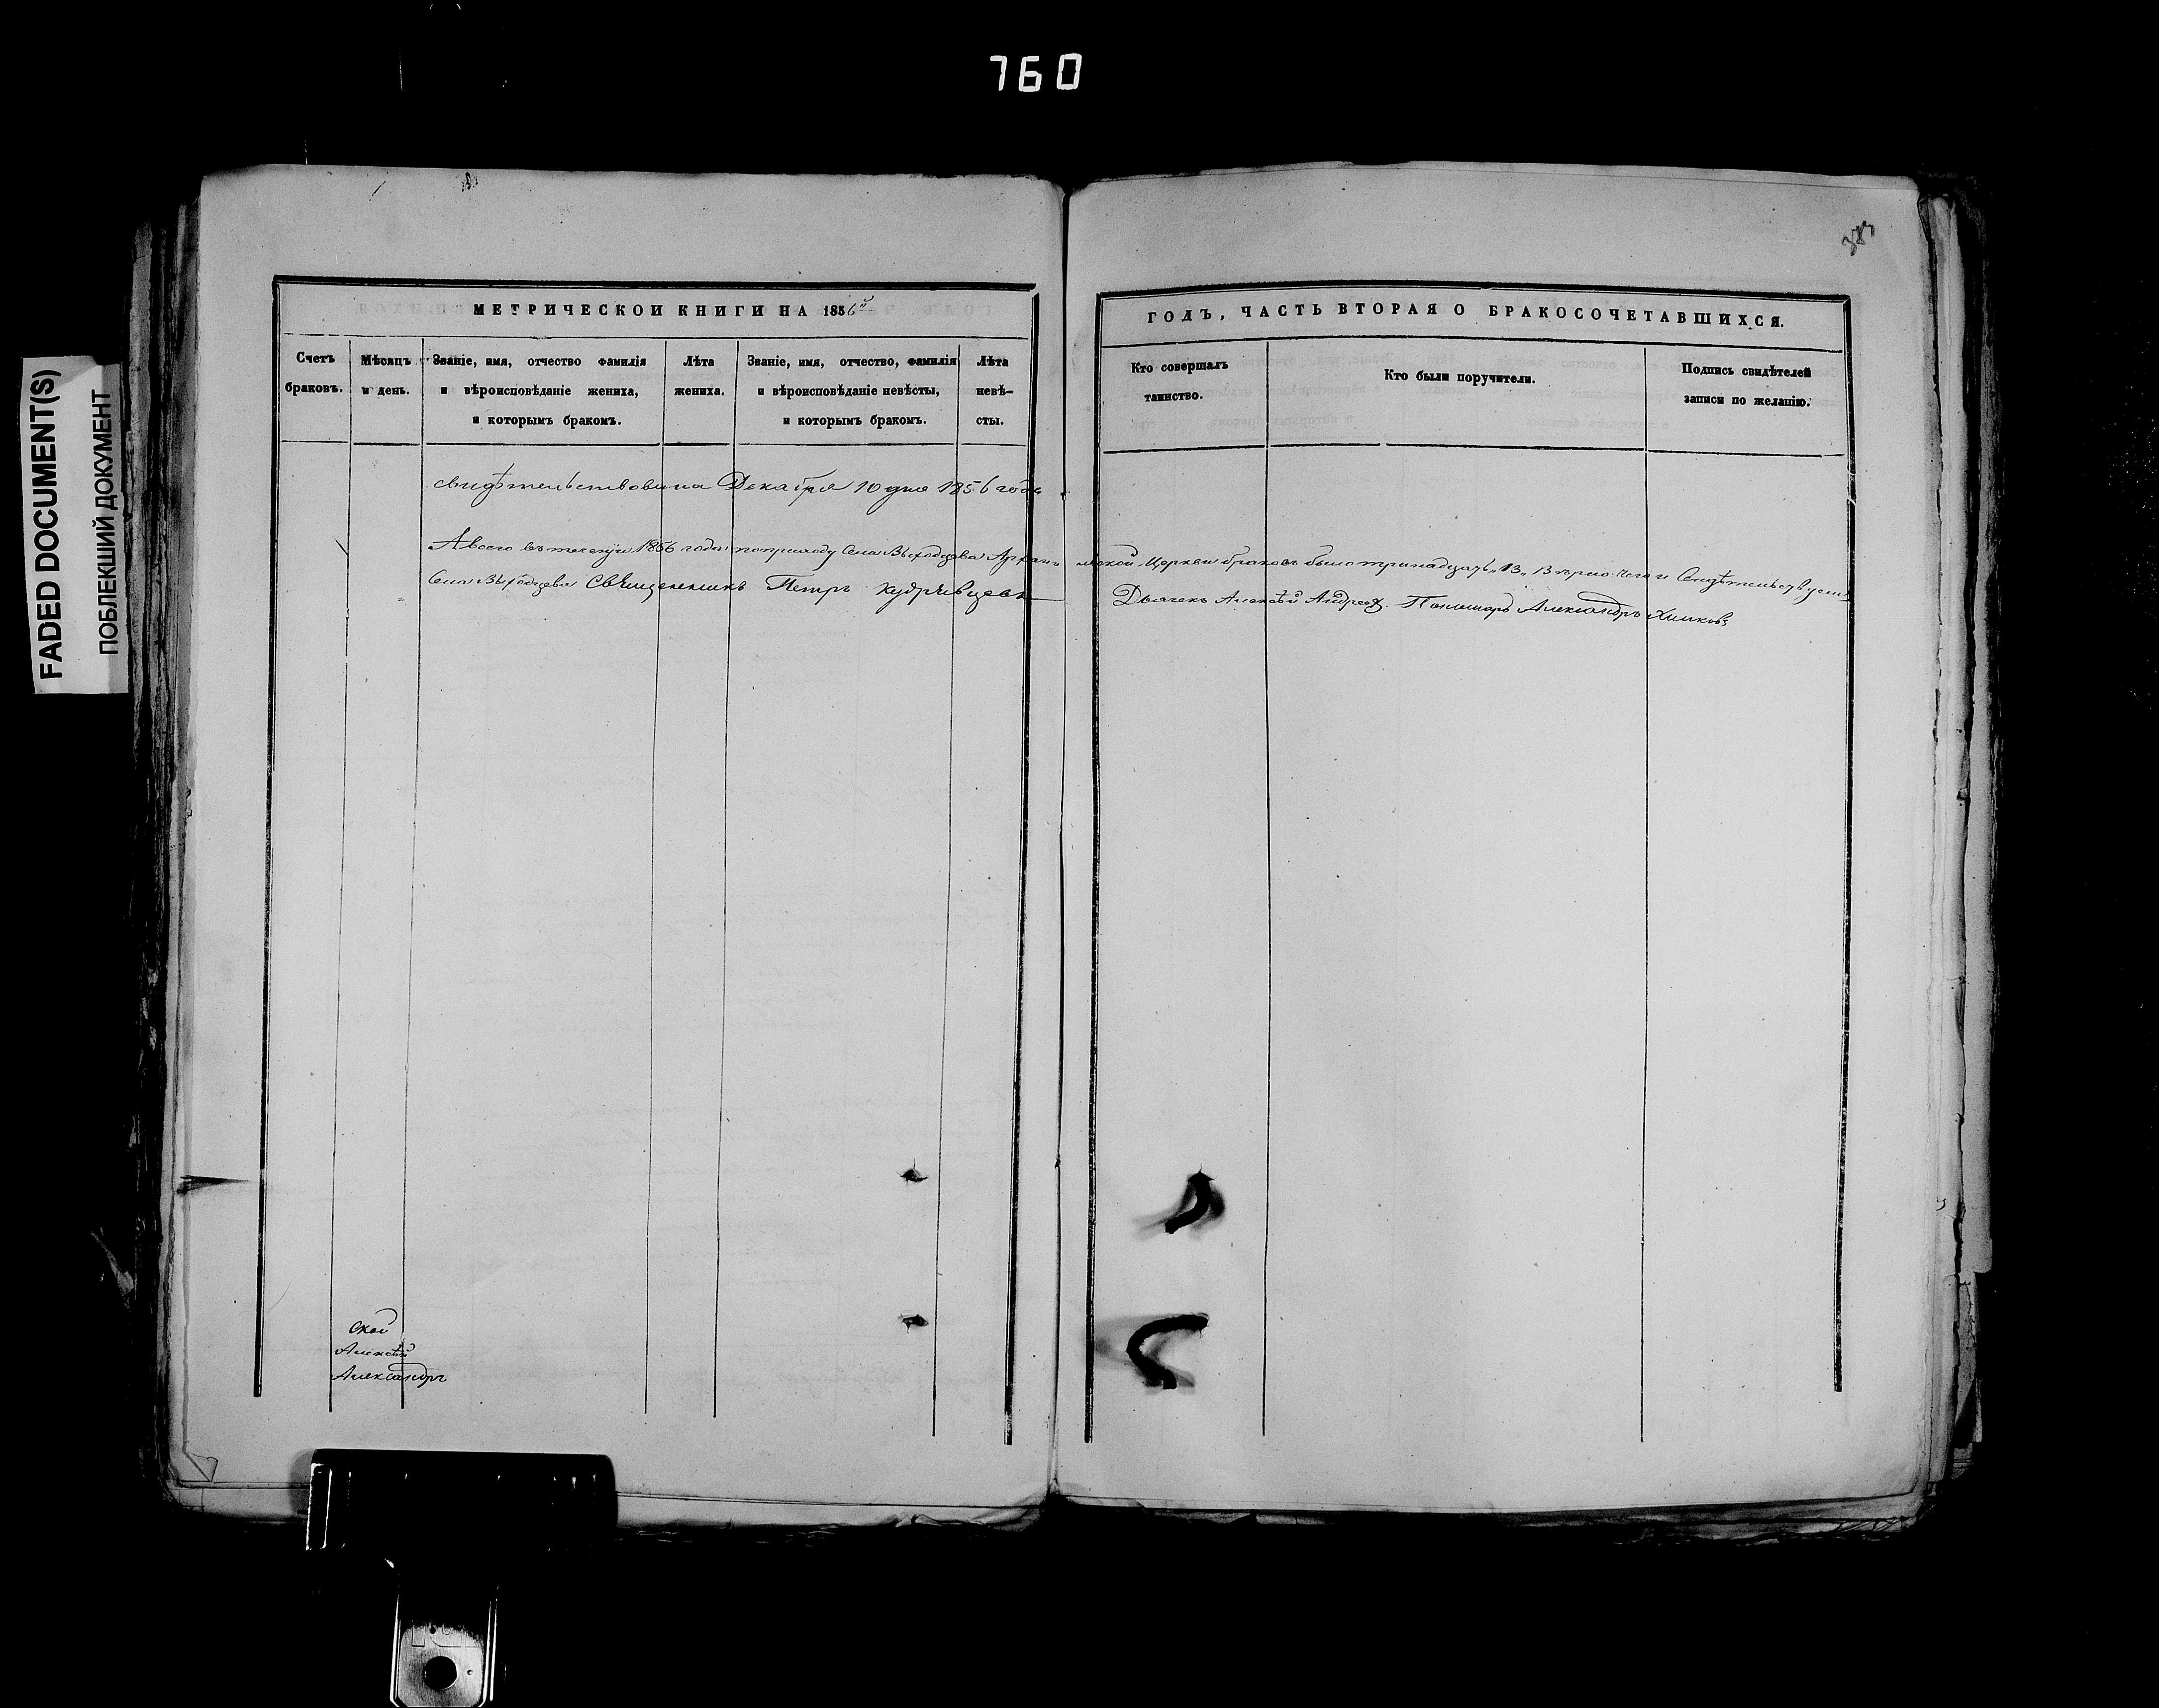 760
FADED DOCUMENT(S)
ПОБЛЕКШИЙ ДОКУМЕНТ
МЕТРИЧЕСКОЙ КНИГИ НА 1856й
Счетъ браковъ.
Мѣсяцъ и день.
Званіе, имя, отчество фамилія и вѣроисповѣданіе жениха, и которымъ бракомъ.
Лѣта жениха.
Званіе, имя, отчество, фамилія и вѣроисповѣданіе невѣсты, и которымъ бракомъ.
Лѣта невѣ-сты.
свидѣтельствована Декабря 10 дня 1856 года
А всего въ 1856 года по приходу Села Выходцева Арханге
Села Выходцева Священникъ Петръ Кудрявцевъ
ской
Алексѣй
Александръ
383
ГОДЪ, ЧАСТЬ ВТОРАЯ О БРАКОСОЧЕТАВШИХСЯ.
Кто совершалъ таинство.
Кто были поручители.
Подпись свидѣтелей записи по желанію.
льской Церкви браковъ было тринадцать „13„ Свидѣтельствуемъ
Дьячекъ Алексѣй Андреев. Пономарь Александръ Химковъ